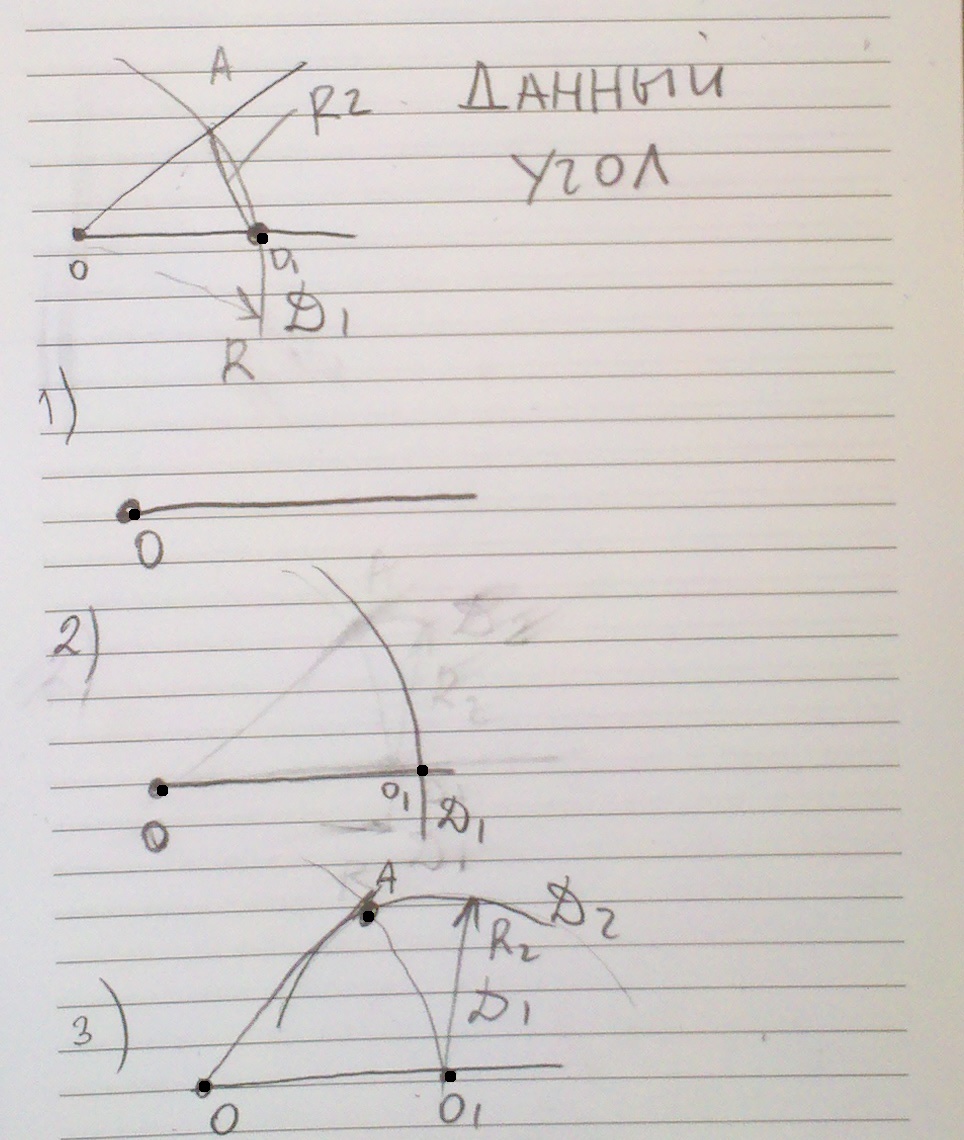 A
R2
ДАННЫЙ
УГОЛ
O
O1
D1
R
1)
O
2)
O1
D1
O
A
D2
R2
D1
3)
O
O1